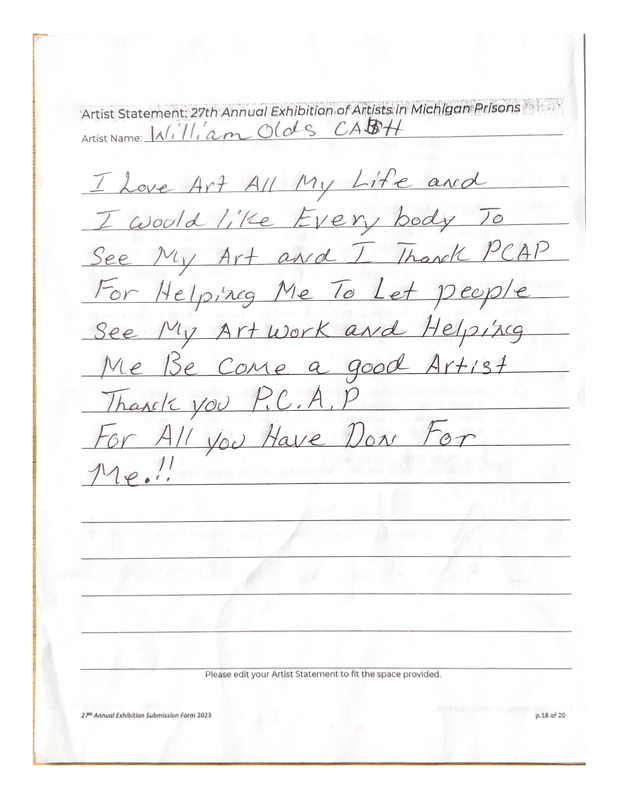 Artist Statement: 27th Annual Exhibition of Artists in Michigan Prisons
Artist Name: William Olds CASH
I Love Art All My Life and
I would like Every body To
See My Art and I Thank PCAP
For Helping Me To Let people
See My Art work and Helping
Me Be Come a good Artist
Thank you P.C.A.P
For All you Have Don For
Me.!!
Please edit your Artist Statement to fit the space provided.
27th Annual Exhibition Submission Form 2023
p.18 of 20